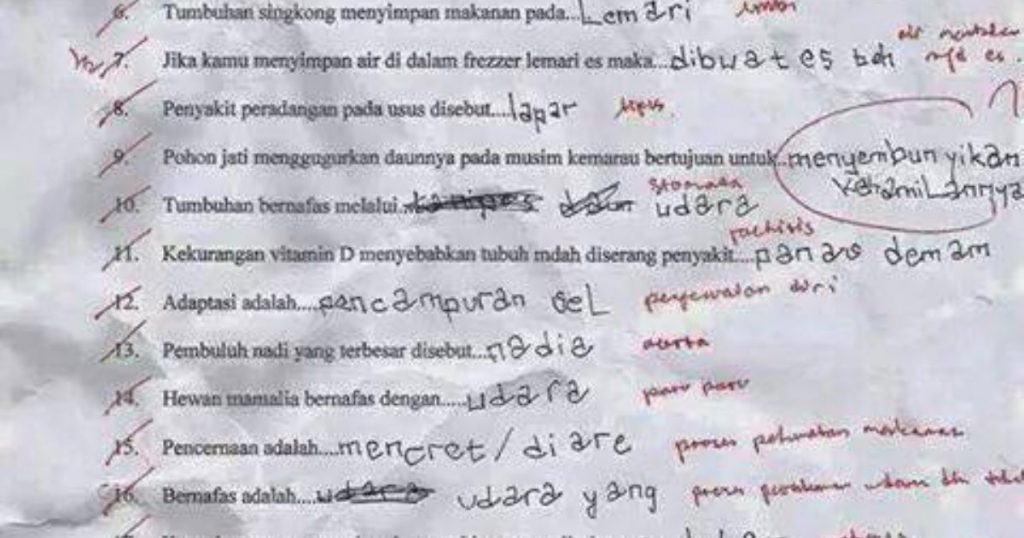 6. Tumbuhan singkong menyimpan makanan pada...Lemari umbi
1/2 7. Jika kamu menyimpan air di dalam frezzer lemari es maka...dibuat es bati air membeku mjd es.
8. Penyakit peradangan pada usus disebut....lapar tipus.
9. Pohon jati menggugurkan daunnya pada musim kemarau bertujuan untuk..menyembunyikan
kehamiLannya
10. Tumbuhan bernafas melalui udara stomata
11. Kekurangan vitamin D menyebabkan tubuh mdah diserang penyakit....panas demam rachitis
12. Adaptasi adalah....pencampuran seL penyesuaian diri
13. Pembuluh nadi yang terbesar disebut...nadia aorta
14. Hewan mamalia bernafas dengan.....udara paru paru
15. Pencernaan adalah....mencret/diare proses makanan
16. Bernafas adalah....udara yang proses